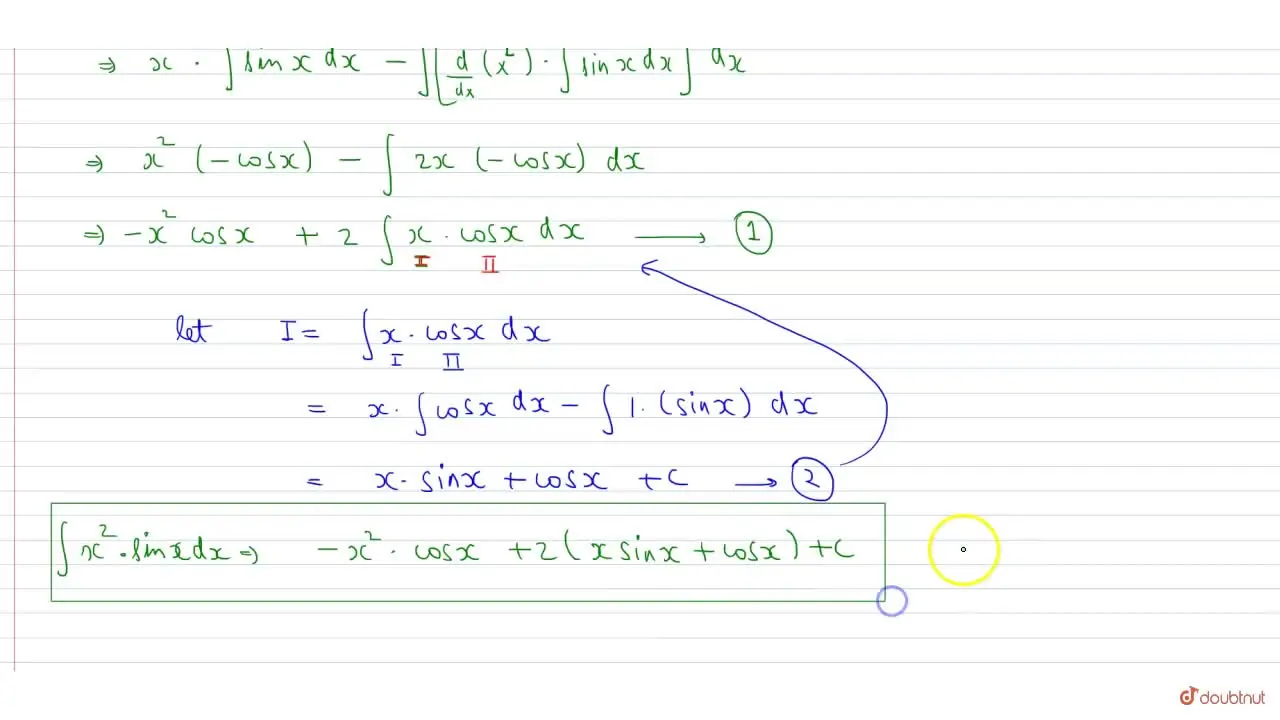 ⇒ x · ∫ sinx dx − ∫[d/dx (x²) · ∫ sinx dx] dx
⇒ x² (−cosx) − ∫ 2x (−cosx) dx
⇒ −x² cosx + 2 ∫ x · cosx dx ⟶ 1
I II
let I = ∫ x · cosx dx
I II
= x · ∫ cosx dx − ∫ 1. (sinx) dx
= x · sinx + cosx + c → 2
∫ x² · sinx dx ⇒ −x² · cosx + 2(x sinx + cosx) + c
doubtnut